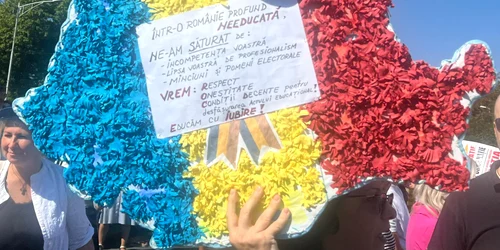 ÎNTR-O ROMÂNIE PROFUND
NEEDUCATĂ!
NE-AM SĂTURAT DE:
- INCOMPETENȚA VOASTRĂ
- LIPSA VOASTRĂ DE PROFESIONALISM
- MINCIUNI ȘI POMENI ELECTORALE
VREM: RESPECT
ONESTITATE
CONDIȚII DECENTE pentru
desfășurarea ACTULUI EDUCAȚIONAL!
EDUCĂM CU IUBIRE!